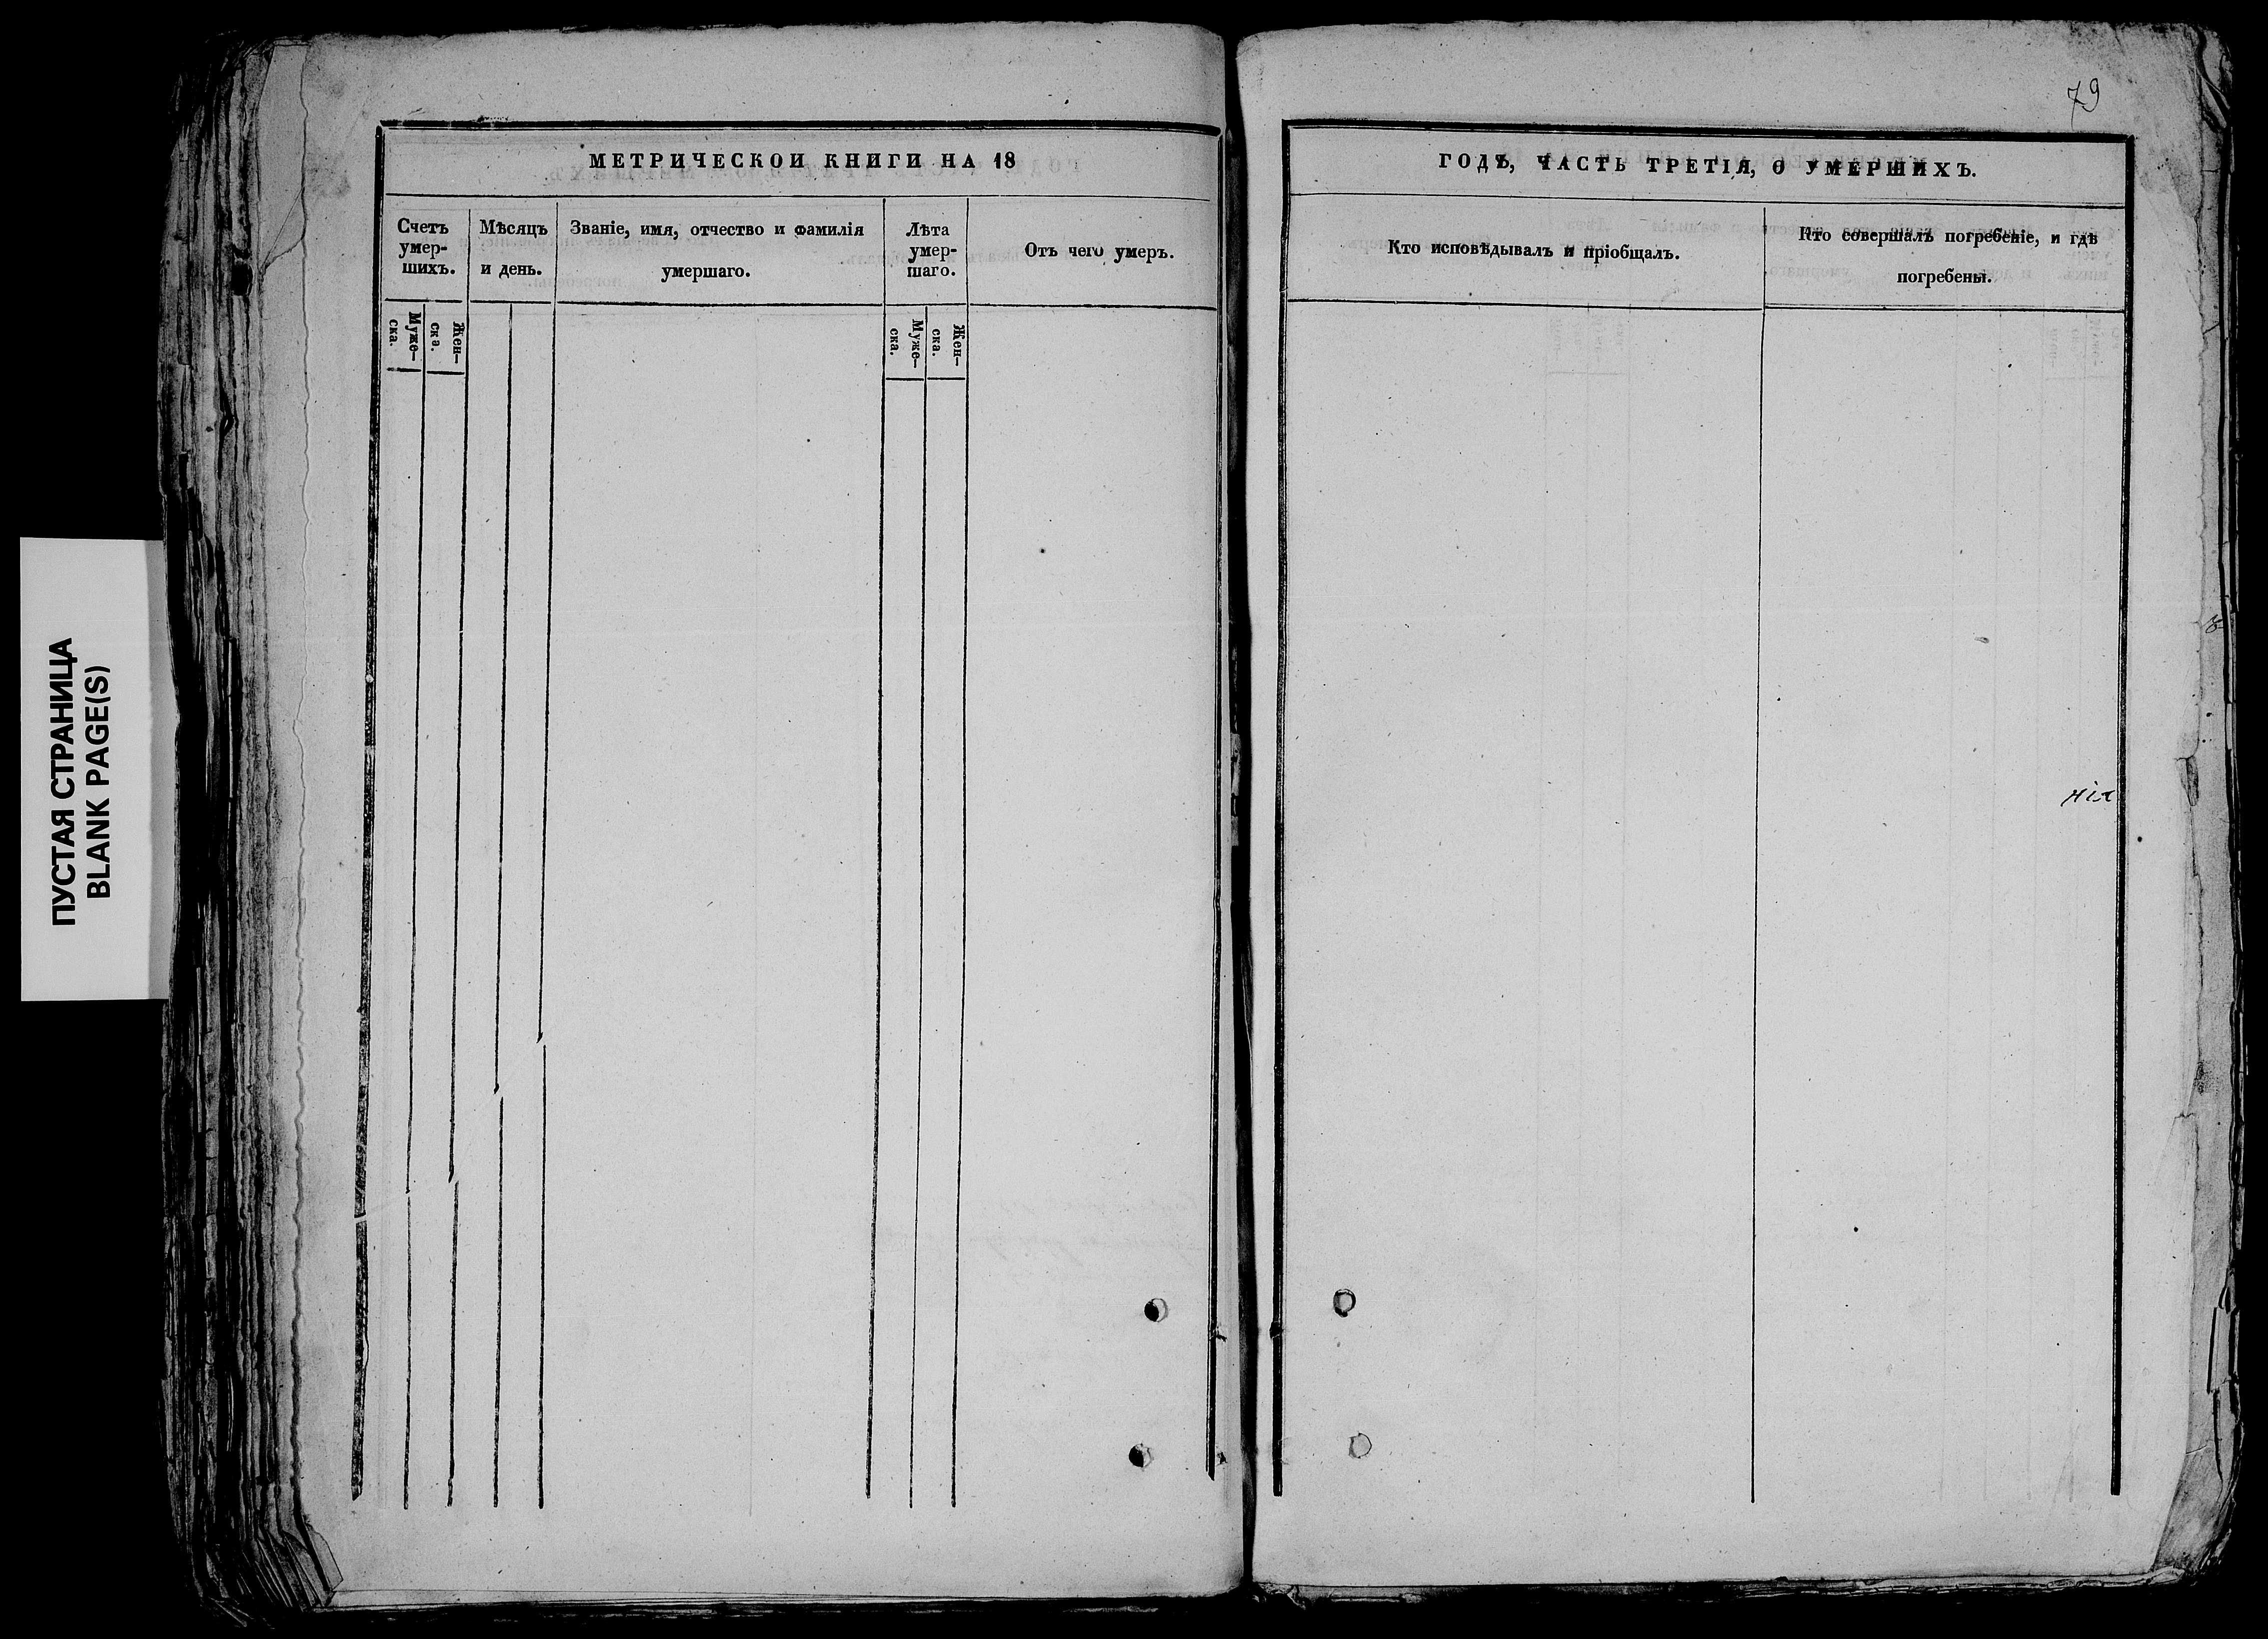 ПУСТАЯ СТРАНИЦА
BLANK PAGE(S)
МЕТРИЧЕСКОИ КНИГИ НА 18
Счетъ умер- шихъ.
Муже- ска.
Жен- ска.
Мѣсяцъ и день.
Званіе, имя, отчество и фамилія
умершаго.
Лѣта умер- шаго.
Муже- ска.
Жен- ска.
Отъ чего умеръ.
79
ГОДЪ, ЧАСТЬ ТРЕТІЯ, О УМЕРШИХЪ.
Кто исповѣдывалъ и пріобщалъ.
Кто совершалъ погребеніе, и гдѣ
погребены.
нія